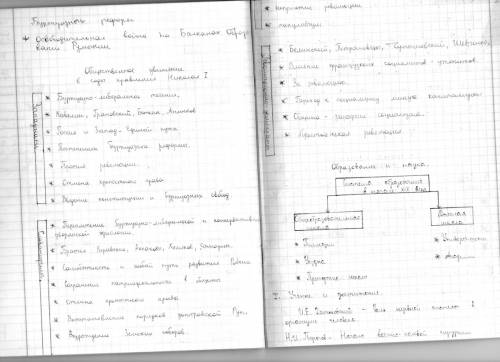 Буржуазные реформы
* Освободительная война на Балканах Образо-
вание Румынии
Общественное движение
в годы правления Николая I
Западники
* Буржуазно-либеральное течение
* Кавелин, Грановский, Боткин, Анненков
* Россия и Запад - единый путь
* Постепенные буржуазные реформы
* Против революции
* Отмена крепостного права
* Введение конституции и буржуазных свобод
* Переплетение буржуазно-либеральной и консервативной
дворянской идеологии
* Братья Киреевские, Аксаковы, Хомяков, Самарин
* Самобытность и особый путь развития России
* Сохранение патриархальности и общины
* Отмена крепостного права
* Восстановление порядков допетровской Руси
* Возрождение Земских соборов
* неприятие революции
* популяризм
* Белинский, Петрашевцы, Чернышевский, Шевченко
* Влияние французских социалистов-утопистов
* За революцию
* Переход к социализму минуя капитализм
* Община - ячейка социализма
* Крестьянская революция
Образование и наука
Система образования
в начале XIX века
Общеобразовательная
школа
* Гимназии
* Уездные
* Приходские школы
Высшая
школа
* Университеты
I. Учёные и достижения
И.Е. Дядьковский - Роль нервной системы в
организме человека
Н.И. Пирогов - Начало военно-полевой хирургии